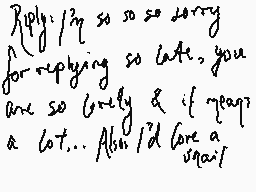 Reply: I'm so so so sorry
for replying so late, you
are so lovely & it means
a lot... Also I'd love a
snail